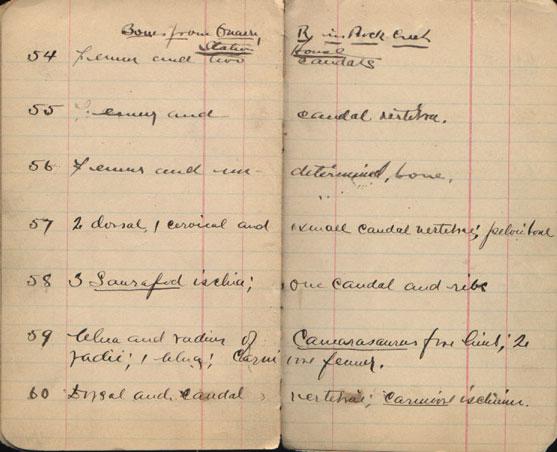 Bones from Quarry R in Rock Creek
Station
54 Femur and two caudals
55 Femur and caudal vertebra.
56 Femur and un- determined, bone.
57 2 dorsal, 1 cervical and 1 small caudal vertebrae; pelvic bone
58 3 Saurapod ischia; one caudal and ribs
59 Ulna and radius of Camarasaurus fore limb; 2
radii; 1 ulna; Carnivore femur.
60 Dorsal and caudal vertebrae; carnivore ischium.